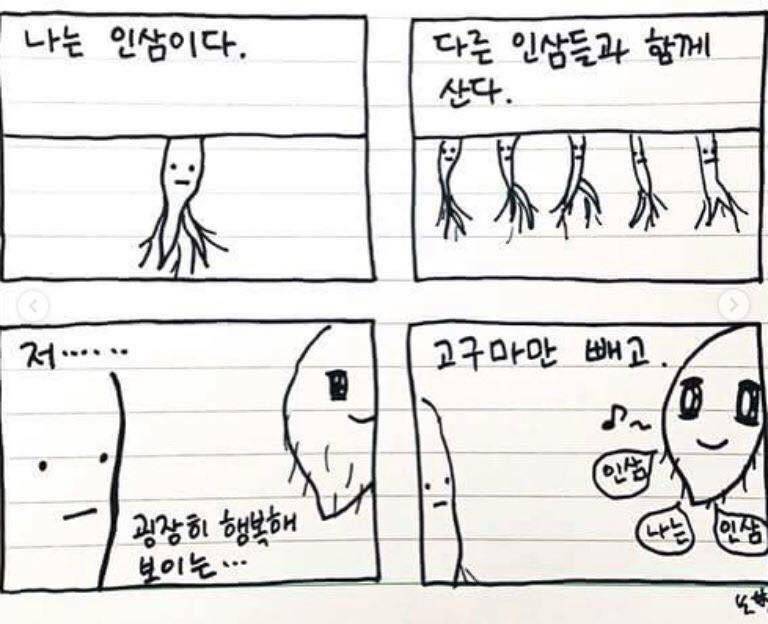 나는 인삼이다.
다른 인삼들과 함께
산다.
저······
굉장히 행복해
보이는···
고구마만 빼고.
인삼
나는
인삼